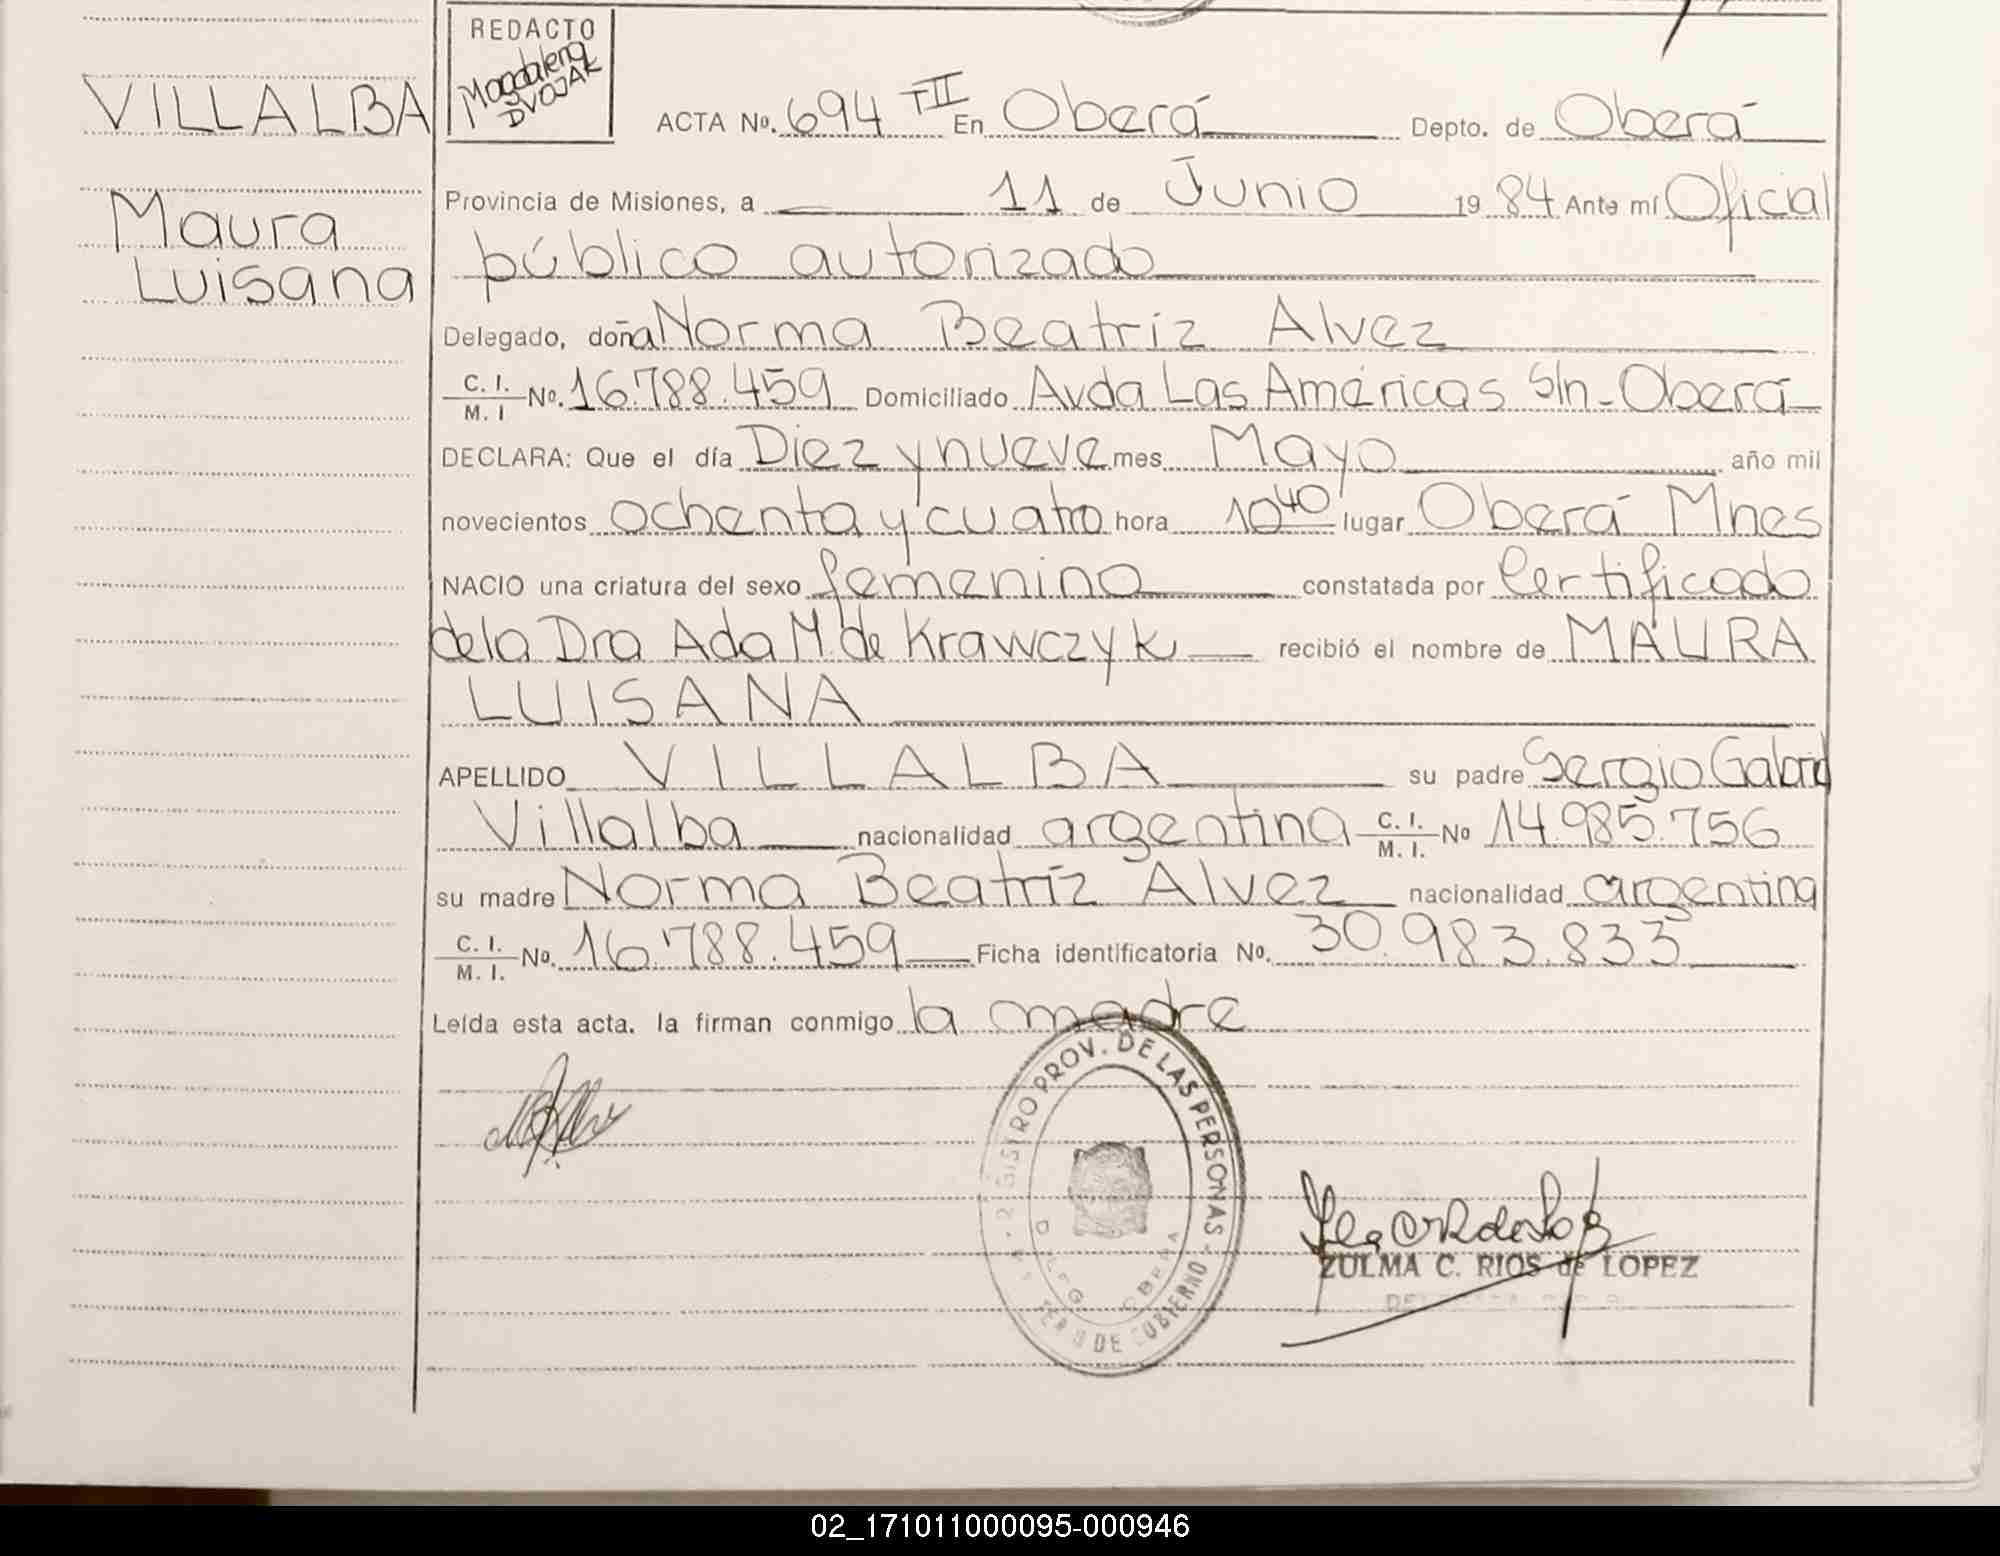 VILLALBA
Maura
Luisana
REDACTO
Magdalena
DVOJAK
ACTA Nº. 694 TII En Oberá Depto. de Oberá
Provincia de Misiones, a 11 de Junio 1984 Ante mí Oficial
público autorizado
Delegado, doña Norma Beatriz Alvez
C. I. / M. I Nº. 16.788.459 Domiciliado Avda Las Américas S/n - Oberá
DECLARA: Que el día Diez y nueve mes Mayo año mil
novecientos ochenta y cuatro hora 10 40 lugar Oberá Mnes
NACIO una criatura del sexo femenino constatada por Certificado
de la Dra Ada M. de Krawczyk recibió el nombre de MAURA
LUISANA
APELLIDO VILLALBA su padre Sergio Gabriel
Villalba nacionalidad argentina C. I. / M. I. Nº 14.985.756
su madre Norma Beatriz Alvez nacionalidad argentina
C. I. / M. I. Nº. 16.788.459 Ficha identificatoria Nº. 30.983.833
Leída esta acta. la firman conmigo la madre
PROV. DE LAS PERSONAS - DE GOBIERNO
ZULMA C. RIOS de LOPEZ
02_171011000095-000946